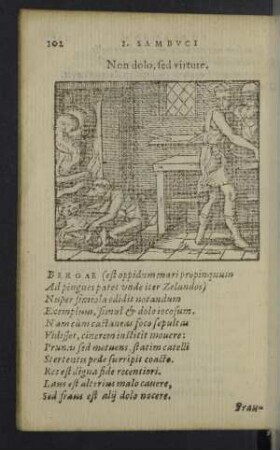 102 I. SAMBVCI
Non dolo, sed virtute.
BERGAE (est oppidum mari propinquum
Ad pingues patet vnde iter Zelandos)
Nuper simiola edidit notandum
Exemplum, simul & dolo iocosum.
Nam cùm castaneas foco sepultas
Vidisset, cinerem institit mouere:
Prunas sed metuens, statim catelli
Stertentis pede surripit coacto.
Res est digna fide recentiori.
Laus est alterius malo cauere,
Sed fraus est alij dolo nocere.
Frau-